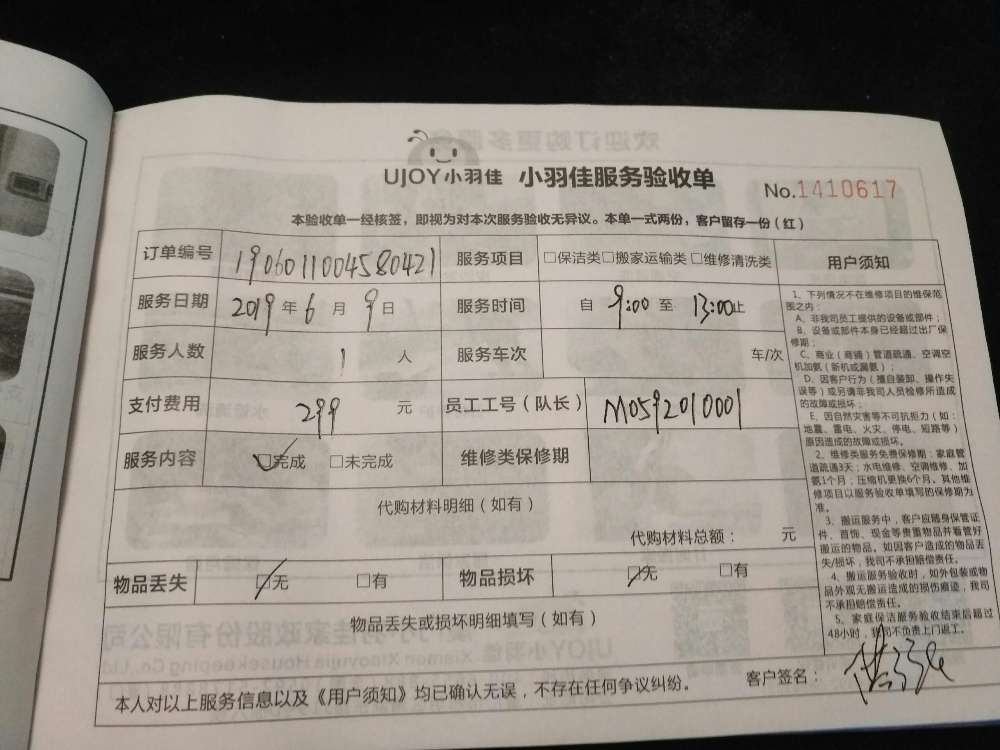 UJOY小羽佳 小羽佳服务验收单
No.1410617
本验收单一经核签，即视为对本次服务验收无异议。本单一式两份，客户留存一份（红）
订单编号 1906011004580421 服务项目 □保洁类□搬家运输类□维修清洗类
服务日期 2019年6月9日 服务时间 自9:00至13:00止
服务人数 1人 服务车次 车/次
支付费用 299元 员工工号（队长） M0592010001
服务内容 ☑完成 □未完成 维修类保修期
代购材料明细（如有）
代购材料总额： 元
物品丢失 ☑无 □有 物品损坏 ☑无 □有
物品丢失或损坏明细填写（如有）
本人对以上服务信息以及《用户须知》均已确认无误，不存在任何争议纠纷。 客户签名：
用户须知
1、下列情况不在维修项目的维保范
围之内：
A、非我司员工提供的设备或部件；
B、设备或部件本身已经超过出厂保
修期；
C、商业（商铺）管道疏通、空调空
机加氨（新机或漏氨）；
D、因客户行为（擅自装卸、操作失
误等）或另请非我司人员检修所造成
的故障或损坏；
E、因自然灾害等不可抗拒力（如：
地震、雷电、火灾、停电、短路等）
原因造成的故障或损坏。
2、维修类服务免费保修期：家庭管
道疏通3天；水电维修、空调维修、加
氨1个月；压缩机更换6个月。其他维
修项目以服务验收单填写的保修期为
准。
3、搬运服务中，客户应随身保管证
件、首饰、现金等贵重物品并看管好
搬运的物品。如因客户造成的物品丢
失/损坏，我司不承担赔偿责任。
4、搬运服务验收时，如外包装或物
品外观无搬运造成的损伤痕迹，我司
不承担赔偿责任。
5、家庭保洁服务验收结束后超过
48小时，我司不负责上门返工。